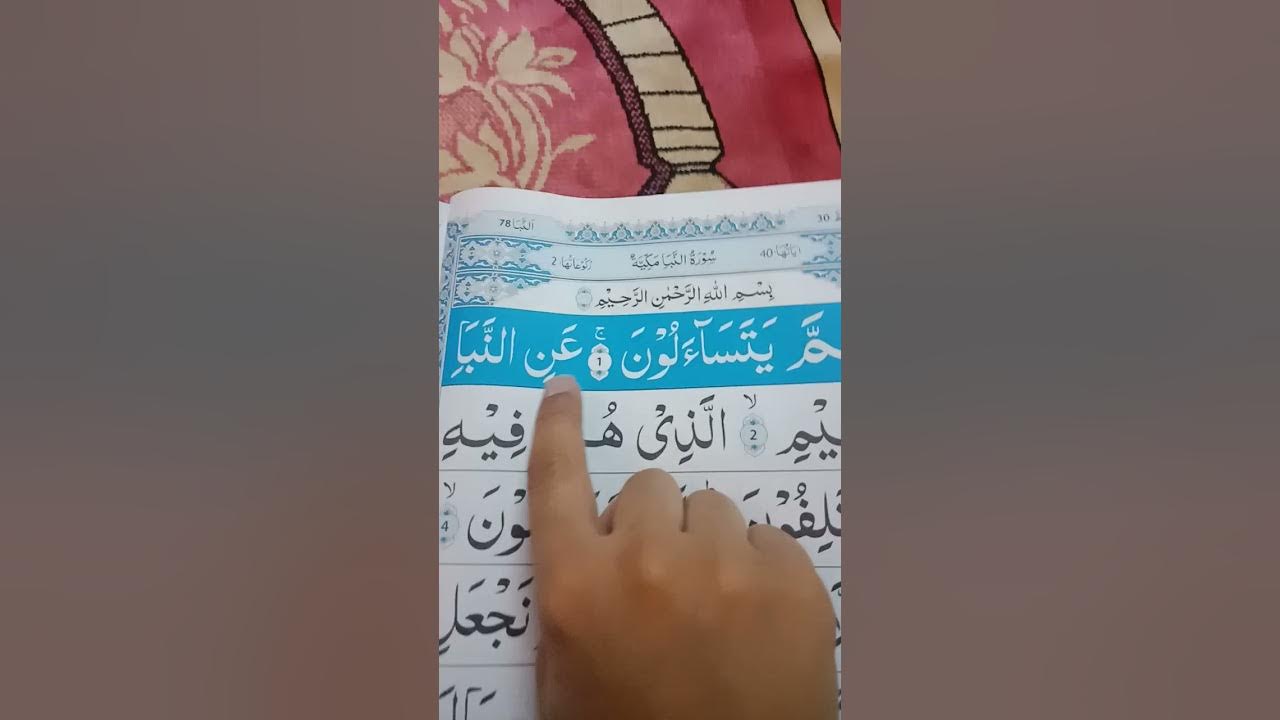 30 اَلنَّبَا 78
اٰيَاتُهَا 40 سُوْرَةُ النَّبَاِ مَكِّيَّةٌ رُكُوْعَاتُهَا 2
بِسْمِ اللهِ الرَّحْمٰنِ الرَّحِيْمِ
مَّ يَتَسَآءَلُوْنَ ۚ 1 عَنِ النَّبَاِ
يْمِ ۙ 2 الَّذِىْ هُ فِيْهِ
تَلِفُوْنَ وْنَ ۙ 4
نَجْعَلِ